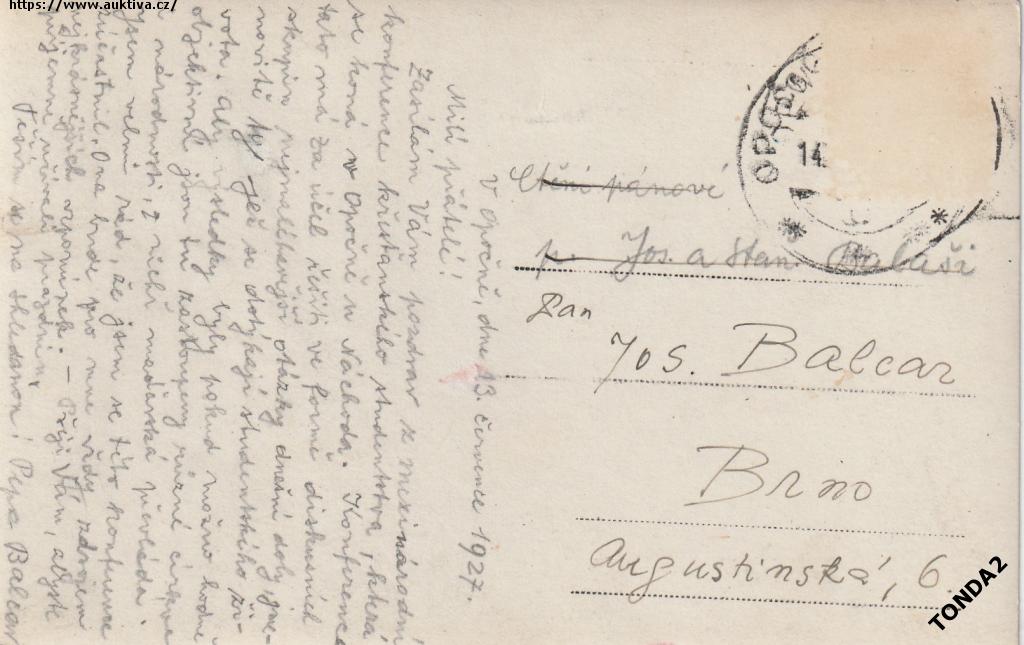 https://www.auktiva.cz/
V Opočně, dne 13. července 1927.
Milí přátelé!
Zasílám Vám pozdrav z mezinárodní
konference křesťanského studentstva, která
se koná v Opočně u Náchoda. Konference
tato má za účel řešiti ve formě diskusních
skupin nejpalčivější otázky dnešní doby jme-
novitě ty, jež se dotýkají studentského ži-
vota. Aby výsledky byly pokud možno hodně
objektivní jsou tu zastoupeny různé církve
a národnosti, z nichž maďarská převládá.
Jsem velmi rád, že jsem se této konference
zúčastnil. Ona bude pro mne vždy zdrojem
nejkrásnějších vzpomínek. – Přeji Vám, abyste
příjemně užívali prázdnin.
Těším se na shledanou! Pepa Balcar
OPOČNO
14
Ctění pánové
p. Jos. a Stan. Balaši
Pan
Jos. Balcar
Brno
Augustinská, 6.
TONDA2